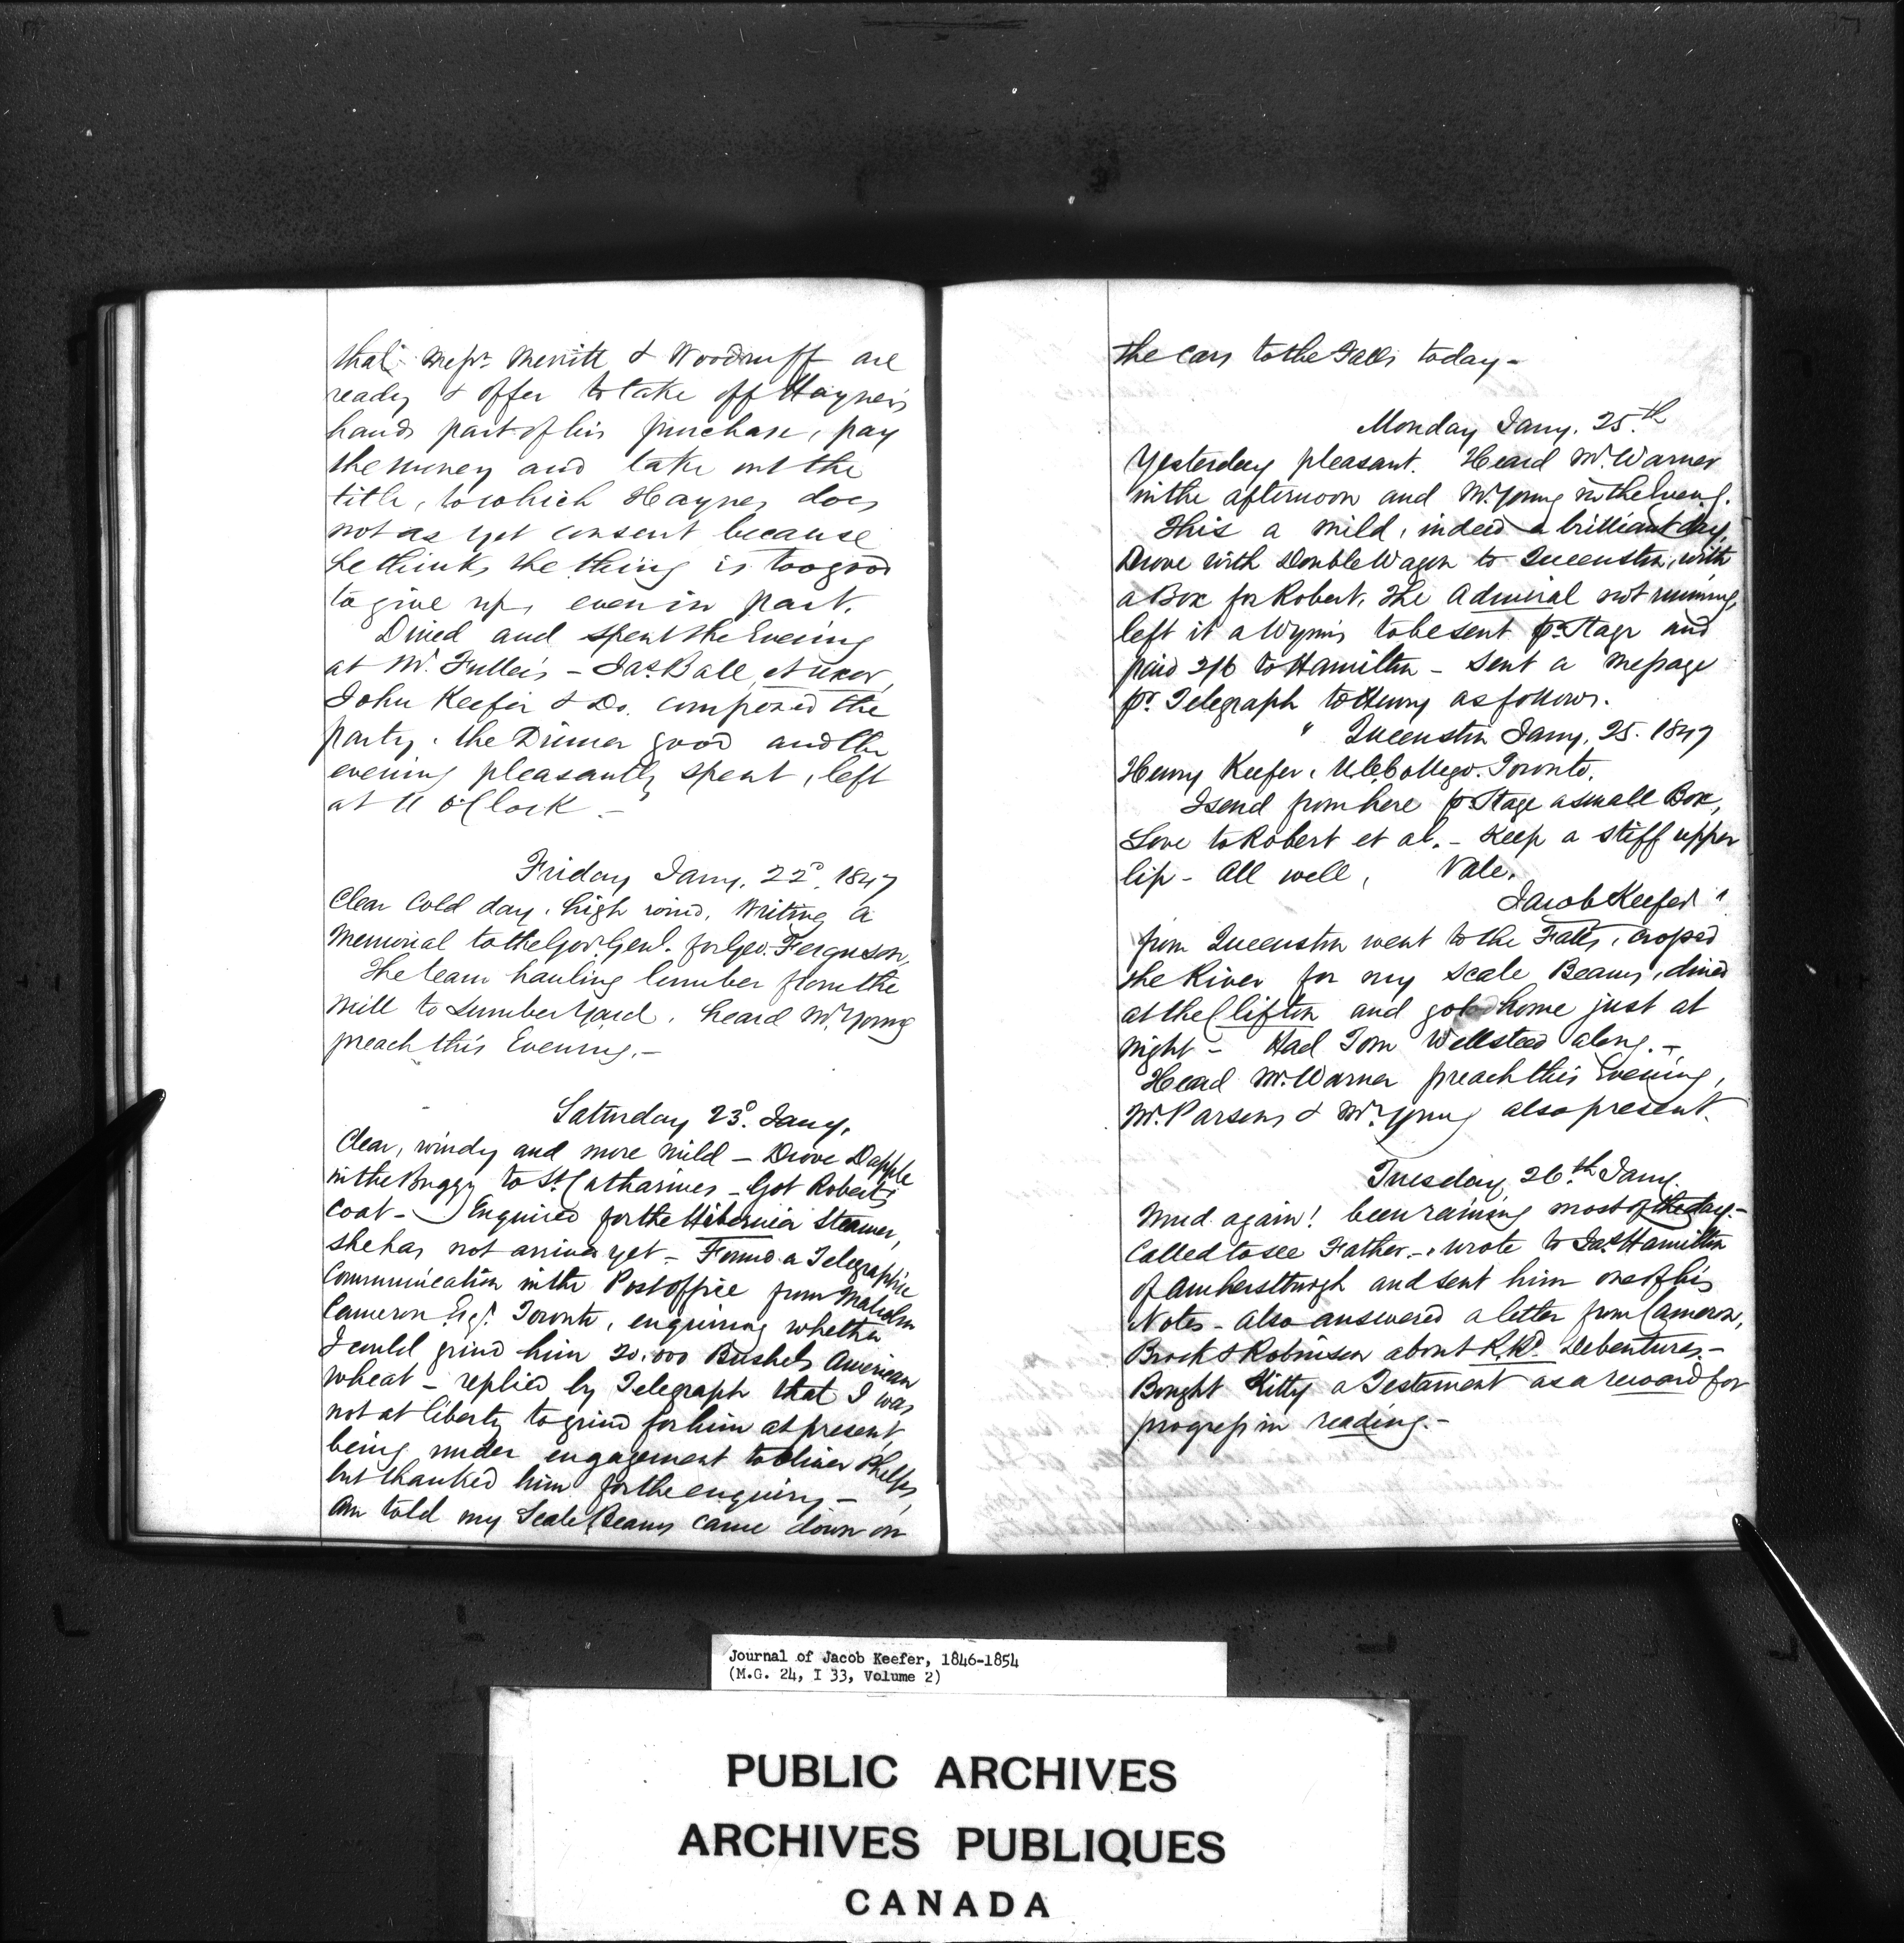 that Messrs. Merritt & Woodruff are
ready & offer to take off Haynes's
hands part of his purchase, pay
the money and take out the
title, to which Haynes does
not as yet consent because
he thinks the thing is too good
to give up, even in part.
Dined and spent the Evening
at Mr. Fuller's – Jas. Ball, et uxor,
John Keefer & Do. composed the
party. the Dinner good and the
evening pleasantly spent, left
at 11 O'Clock. –
Friday Jany. 22d. 1847
Clear Cold day, high wind, Writing a
Memorial to the Gov. Genl. for Geo. Ferguson,
The team hauling lumber from the
Mill to Lumber Yard. heard Mr. Young
preach this Evening. –
Saturday 23d. Jany.
Clear, windy and more mild – Drove Dapple
in the Buggy to St. Catharines – Got Robert's
Coat – Enquired for the Hibernia Steamer,
she has not arrived yet – Found a Telegraphic
Communication in the Post office from Malcolm
Cameron Esqr. Toronto, enquiring whether
I could grind him 20.000 Bushels American
wheat – replied by Telegraph that I was
not at liberty to grind for him at present,
being under engagement to Oliver Phelps,
but thanked him for the enquiry –
Am told my Scale Beams came down on
the Cars to the Falls today –
Monday Jany. 25th
Yesterday pleasant. Heard Mr. Warner
in the afternoon and Mr. Young in the Eveng.
This a mild, indeed a brilliant day,
Drove with Double Wagon to Queenston, with
a Box for Robert, The Admiral not running,
left it a Wynn's to be sent pr. Stage and
paid 2/6 to Hamilton – Sent a Message
pr. Telegraph to Henry as follows.
" Queenston Jany. 25. 1847
Henry Keefer, U.C. College. Toronto.
I send from here pr Stage a small Box,
Love to Robert et al. – Keep a stiff upper
lip – All well, Vale.
Jacob Keefer "
from Queenston went to the Falls, crossed
the River for my Scale Beams, dined
at the Clifton and got home just at
night – Had Tom Wellsteed along. –
Heard Mr. Warner preach this Evening,
Mr. Parsons & Mr. Young also present.
Tuesday, 26th Jany.
Mud again! been raining most of the day –
Called to see Father. – Wrote to Jas. Hamilton
of Amherstburgh and sent him one of his
Notes – Also answered a letter from Cameron,
Brock & Robinson about R. Rd. Debentures. –
Bought Kitty a Testament as a reward for
progress in reading. –
Journal of Jacob Keefer, 1846-1854
(M.G. 24, I 33, Volume 2)
PUBLIC ARCHIVES
ARCHIVES PUBLIQUES
CANADA